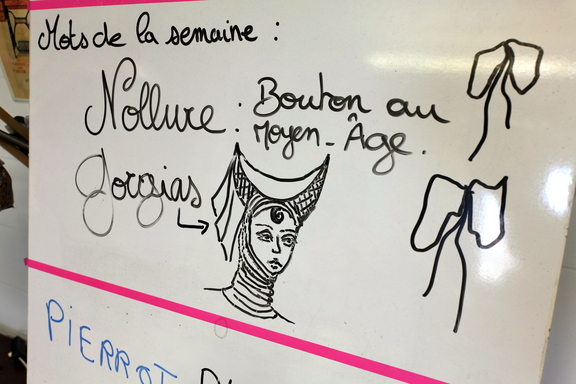 Mots de la semaine :
Nollure : Bouton au
Moyen-Âge.
Gorgias
PIERROT